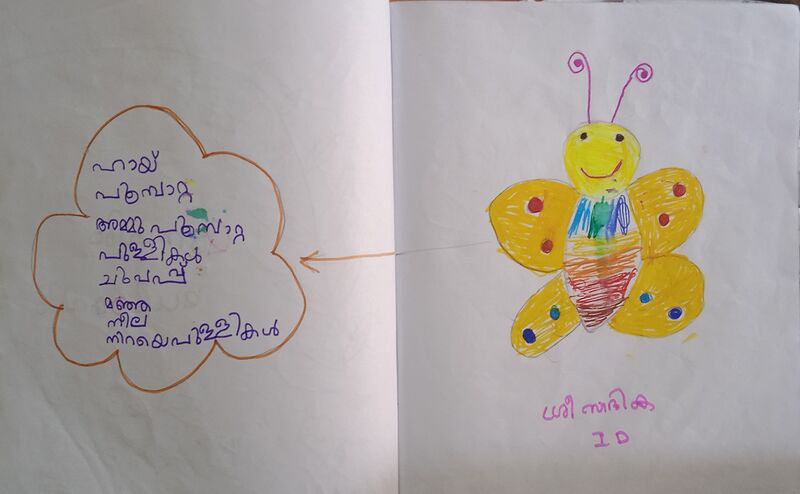 ഹായ്
പൂമ്പാറ്റ
അമ്മു പൂമ്പാറ്റ
പുള്ളികൾ
ചുപപ്പ്
മഞ്ഞ
നീല
നിറയെ പുള്ളികൾ
ശ്രീ
I D